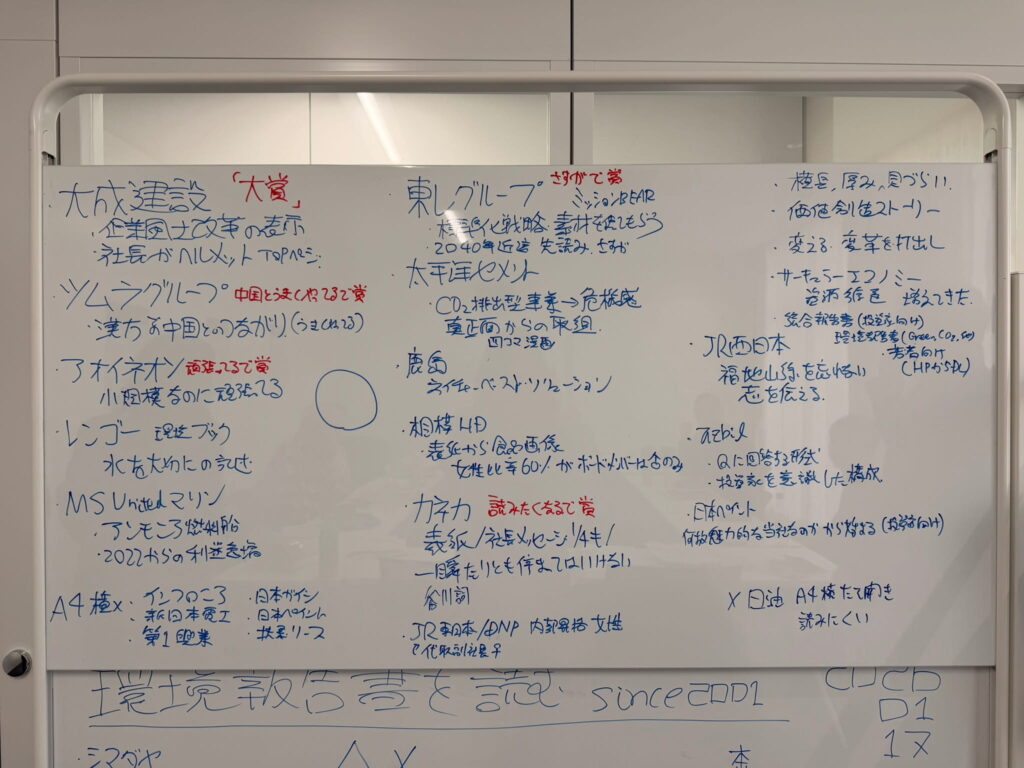 大成建設 「大賞」
・企業風土改革の表示
・社長がヘルメット TOPページ
ツムラグループ 中国とうまくやってるで賞
・漢方 中国とのつながり(うまくやれてる)
・アオイネオン 頑張ってるで賞
小規模なのに頑張ってる
・レンゴー 環境ブック
水を大切にの記述
・MS Unitedマリン
・アンモニア燃料船
・2022からの
A4横×
・インフロニア
・新日本電工
・第1
・日本ガイシ
・日本ペイント
・リース
東レグループ さすがで賞
ミッションBEAR
戦略 素材を
・2040年近傍 先読み さすが
・太平洋セメント
・CO2排出型事業→危機感
真正面からの取組
四コマ漫画
・鹿島
ネイチャーベースト・ソリューション
・相模HD
・表紙から食品画像
女性比率60%がボードメンバーは1名のみ
・カネカ 読みたくなるで賞
表紙/社長メッセージ/
一瞬たりとも停まってはいけない
谷川
・JR東日本/DNP 内部昇格 女性
代取副社長
・横長、厚み、見づらい
・価値創造ストーリー
・変える 変革を打出し
・サーキュラーエコノミー
資源循環 増えてきた
・統合報告書(投資家向け)
環境報告書(Green, CO2,
(HPからDL)
・JR西日本
福知山線を忘れない
・Qに回答する形式
・投資家を意識した構成
・日本
何故魅力的な当社なのかから始まる(投資家向け)
× 日油 A4横たて開き
読みにくい
環境報告書を読む since2001
D1
1X
・シマダヤ